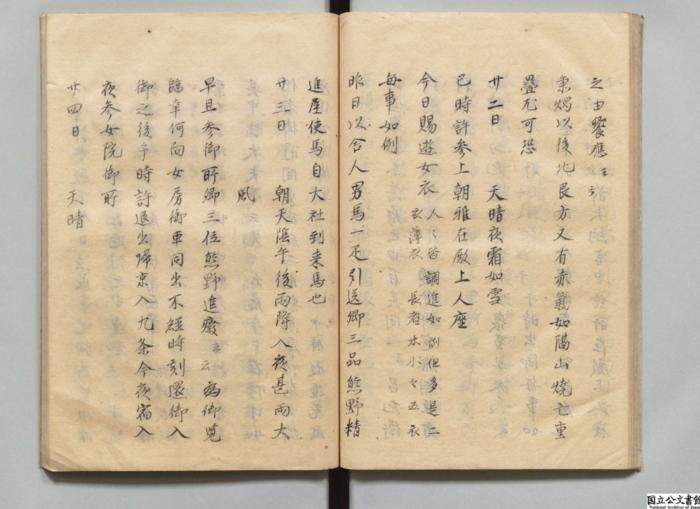 之由饗應云々
秉燭以後北艮方又有赤氣如陽山燒亡重
疊尤可恐
廿二日　天晴夜霜如雪
巳時許參上朝雅在殿上人座
今日賜遊女衣 人々皆調進如例但多是二
衣薄衣 長者 小々五衣
每事如例
昨日以舍人男馬一疋引送卿三品熊野精
進屋使馬自大社到来馬也
廿三日　朝天陰午後雨降入夜甚雨大
風
早旦參御所卿三位熊野進發云々為御覧
臨幸何向女房御車同出不經時刻還御入
御之後午時許退出歸京入九条今夜宿入
夜参女院御所
廿四日　天晴
国立公文書館
National Archives of Japan